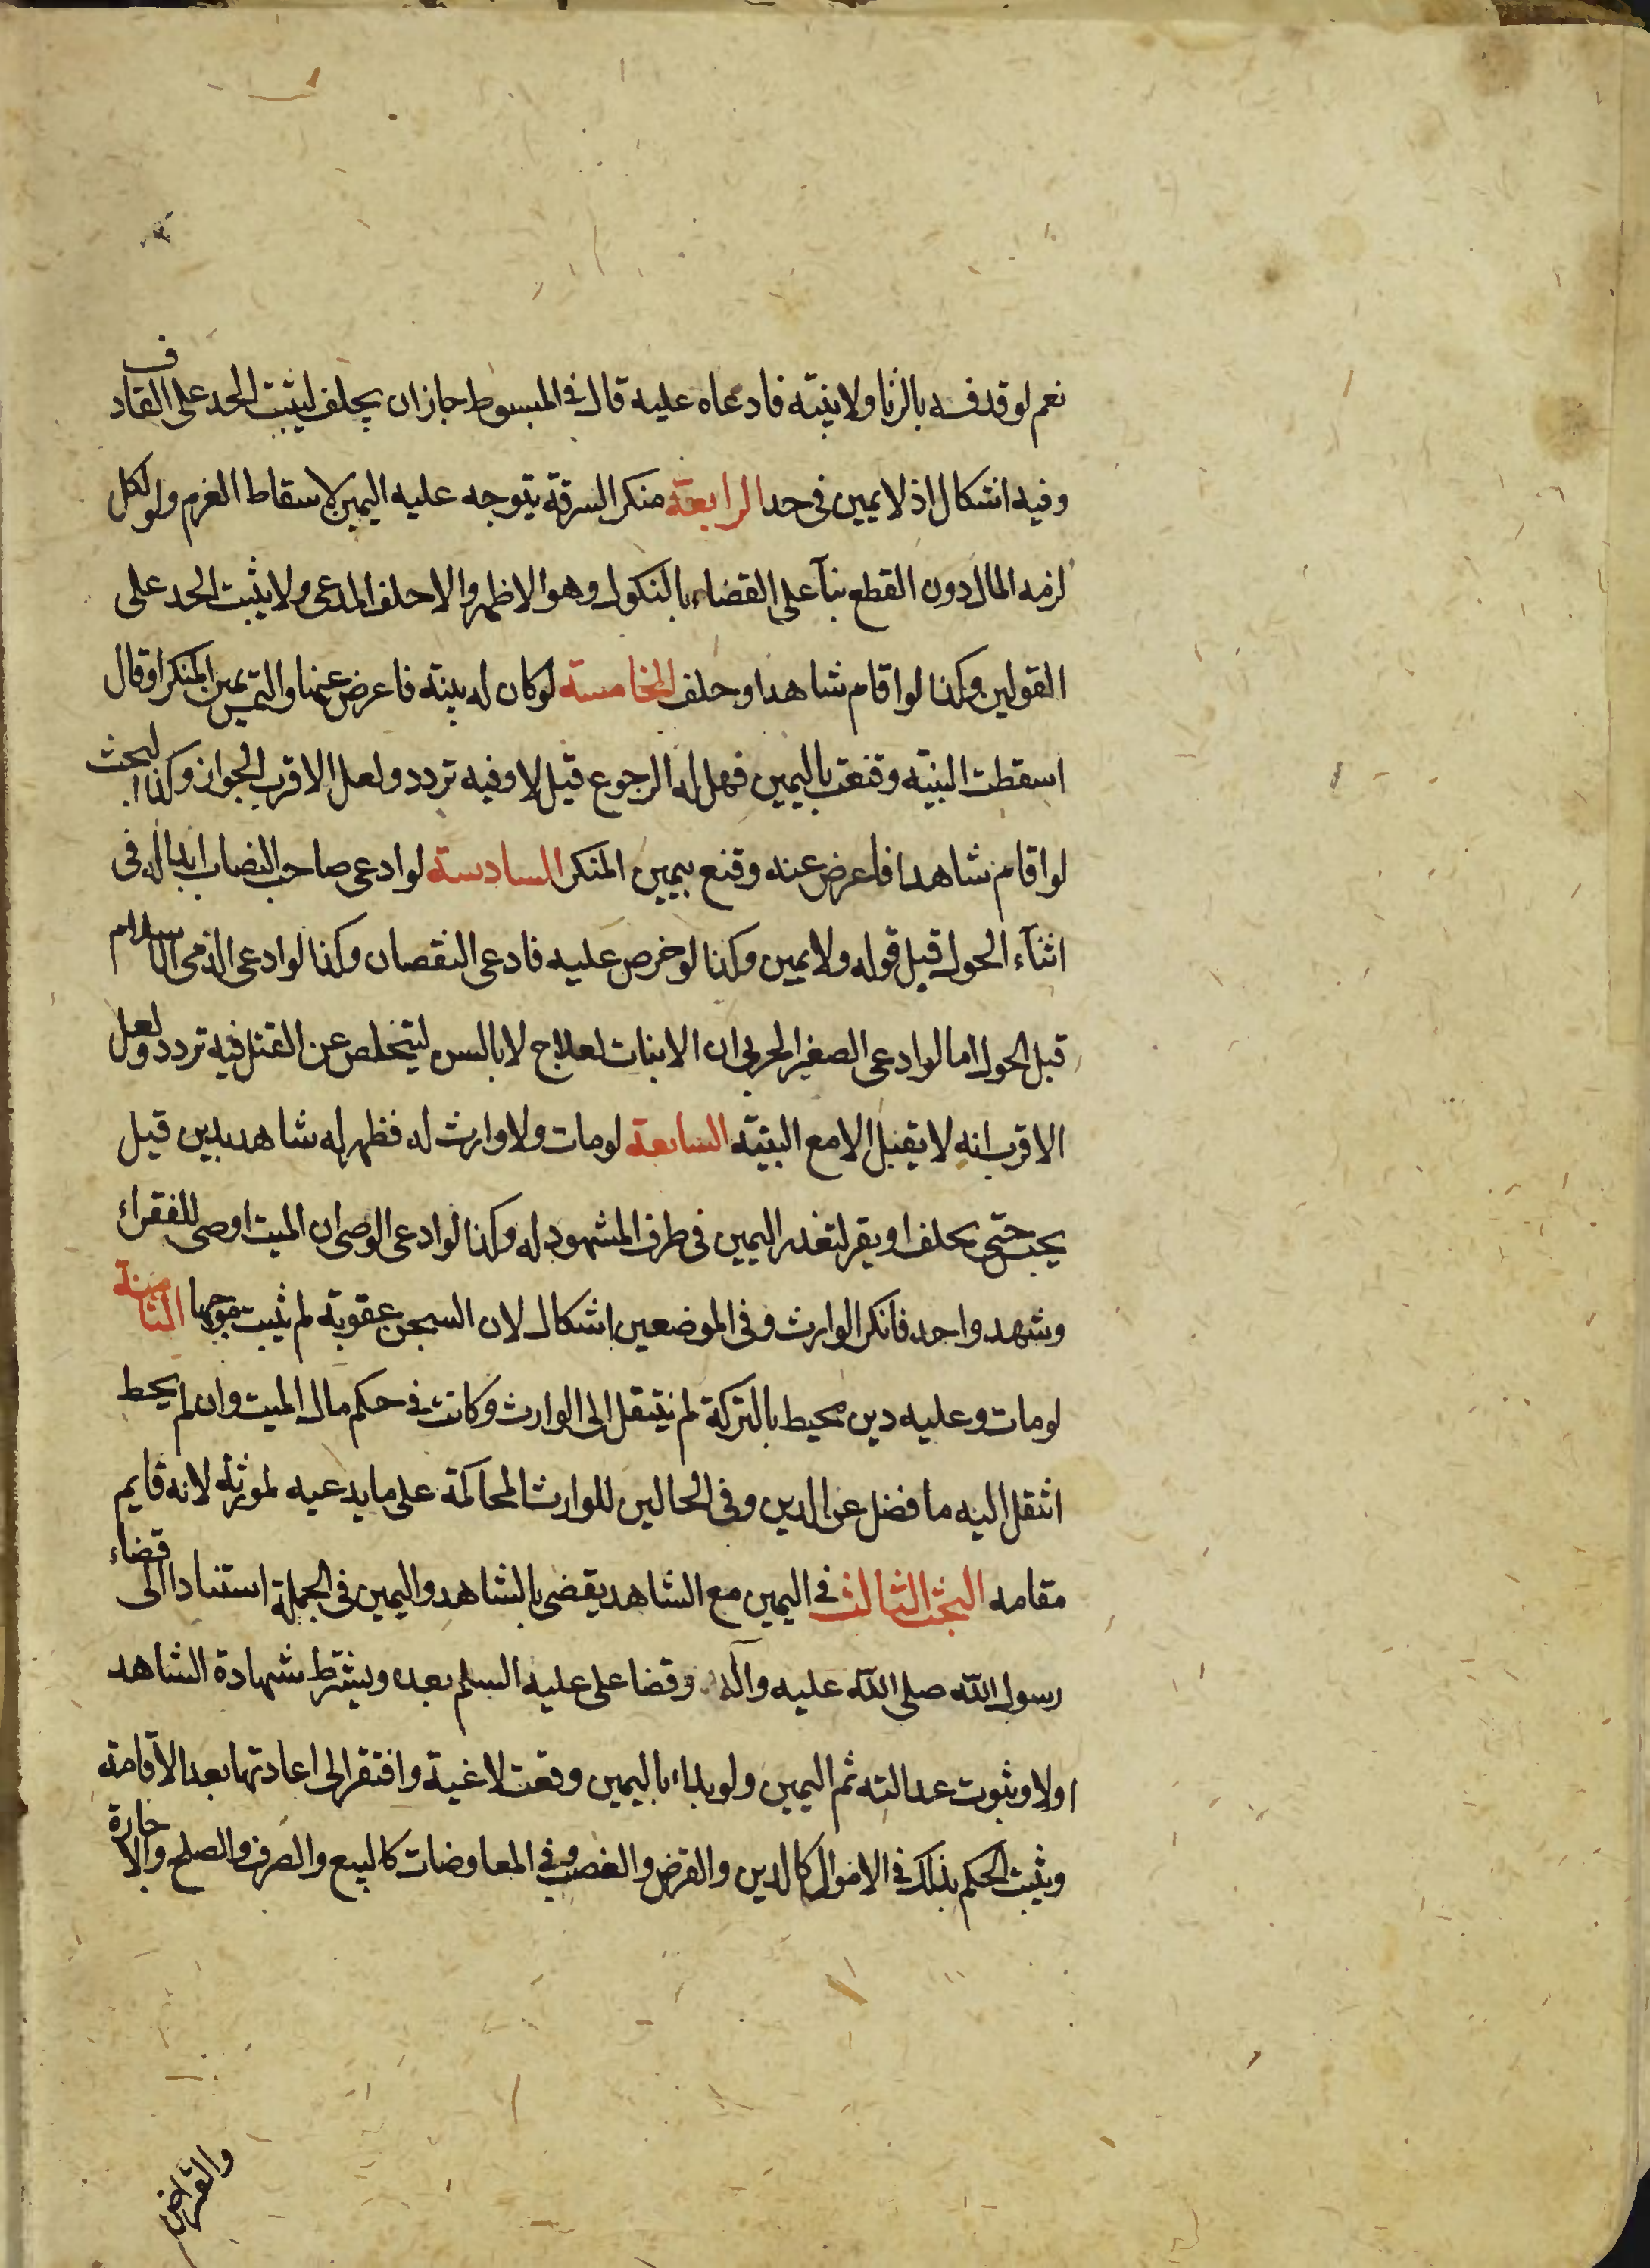 نعم لو قدفه بالزنا ولا بينة فادعاه عليه قال في المبسوط جاز ان يحلف ليثبت الحد على القاذف
وفيه اشكال اذ لا يمين في حد الرابعة منكر السرقة يتوجه عليه اليمين لاسقاط الغرم ولو نكل
لزمه المال دون القطع بنآ على القضاء بالنكول وهو الاظهر والا حلف المدعى ولا يثبت الحد على
القولين وكذا لو اقام شاهدا وحلف الخامسة لو كان له بينة فاعرض عنها والتمس يمين المنكر او قال
اسقطت البينة وقنعت باليمين فهل له الرجوع قيل لا وفيه تردد ولعل الاقرب الجواز وكذا البحث
لو اقام شاهدا فاعرض عنه وقنع بيمين المنكر السادسة لو ادعى صاحب النصاب ابداله في
اثنآء الحول قبل قوله ولا يمين وكذا لو خرص عليه فادعى النقصان وكذا لو ادعى الذمى الاسلام
قبل الحول اما لو ادعى الصغير الحربي ان الانبات لعلاج لا بالسن ليتخلص عن القتل فيه تردد ولعل
الاقرب انه لا يقبل الا مع البينة السابعة لو مات ولا وارث له فظهر له شاهد بدين قيل
يحبس حتى يحلف او يقر لتعذر اليمين في طرف المشهود له وكذا لو ادعى الوصى ان الميت اوصى للفقراء
وشهد واحد فانكر الوارث وفي الموضعين اشكال لان السجن عقوبة لم يثبت موجبها الثامنة
لو مات وعليه دين محيط بالتركة لم ينتقل الى الوارث وكانت في حكم مال الميت وان لم يحط
انتقل اليه ما فضل عن الدين وفي الحالين للوارث المحاكمة على ما يدعيه لمورثه لانه قايم
مقامه البحث الثالث في اليمين مع الشاهد يقضى بالشاهد واليمين في الجملة استنادا الى قضاء
رسول الله صلى الله عليه وآله وقضا على عليه السلم بعده ويشترط شهادة الشاهد
اولا وثبوت عدالته ثم اليمين ولو بداء باليمين وقعت لاغية وافتقر الى اعادتها بعد الاقامة
ويثبت الحكم بذلك في الاموال كالدين والقرض والغصب وفي المعاوضات كالبيع والصرف والصلح والاجارة
والقراض